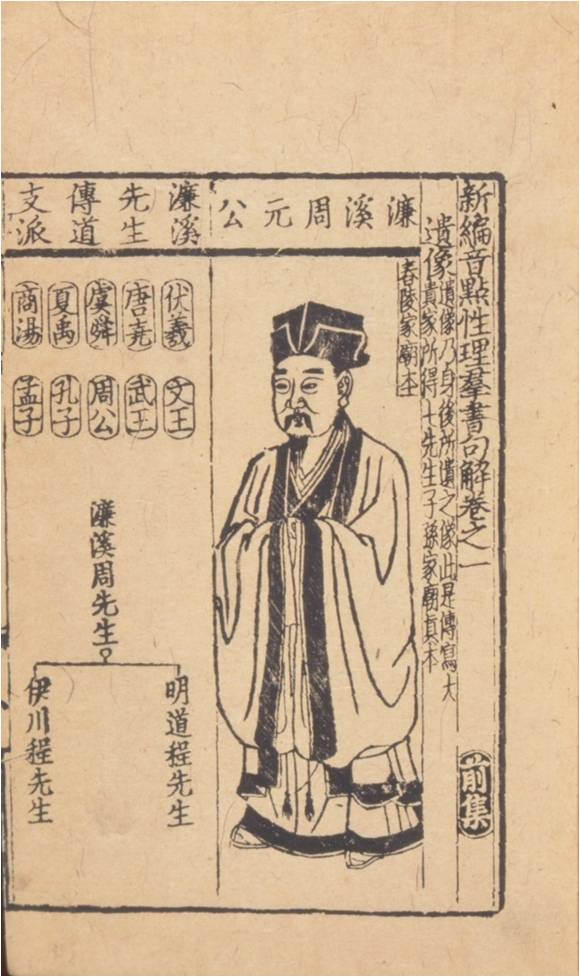 新編音點性理羣書句解卷之一
前集
遺像
遺像乃身後所遺之像此是傳寫大
貴家所得七先生子孫家廟真本
濂溪周元公
舂陵家廟本
濂溪先生傳道支派
伏羲
唐堯
虞舜
夏禹
商湯
文王
武王
周公
孔子
孟子
濂溪周先生
明道程先生
伊川程先生